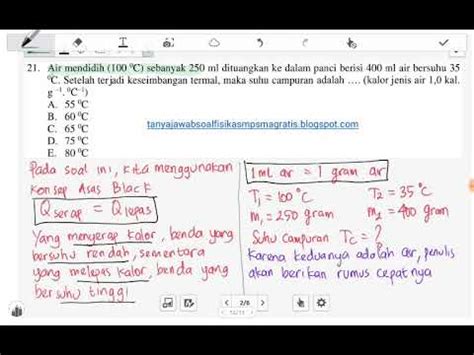 21. Air mendidih (100 °C) sebanyak 250 ml dituangkan ke dalam panci berisi 400 ml air bersuhu 35
°C. Setelah terjadi keseimbangan termal, maka suhu campuran adalah .... (kalor jenis air 1,0 kal.
g⁻¹.°C⁻¹)
A. 55 °C
B. 60 °C
C. 65 °C
D. 75 °C
E. 80 °C
tanyajawabsoalfisikasmpsmagratis.blogspot.com
Pada soal ini, kita menggunakan
konsep Asas Black
Qserap = Qlepas
Yang menyerap kalor, benda yang
bersuhu rendah, sementara
yang melepas kalor, benda yang
bersuhu tinggi
1 ml air = 1 gram air
T₁ = 100 °C T₂ = 35 °C
m₁ = 250 gram m₂ = 400 gram
Suhu Campuran Tc = ?
Karena keduanya adalah air, penulis
akan berikan rumus cepatnya
2/6